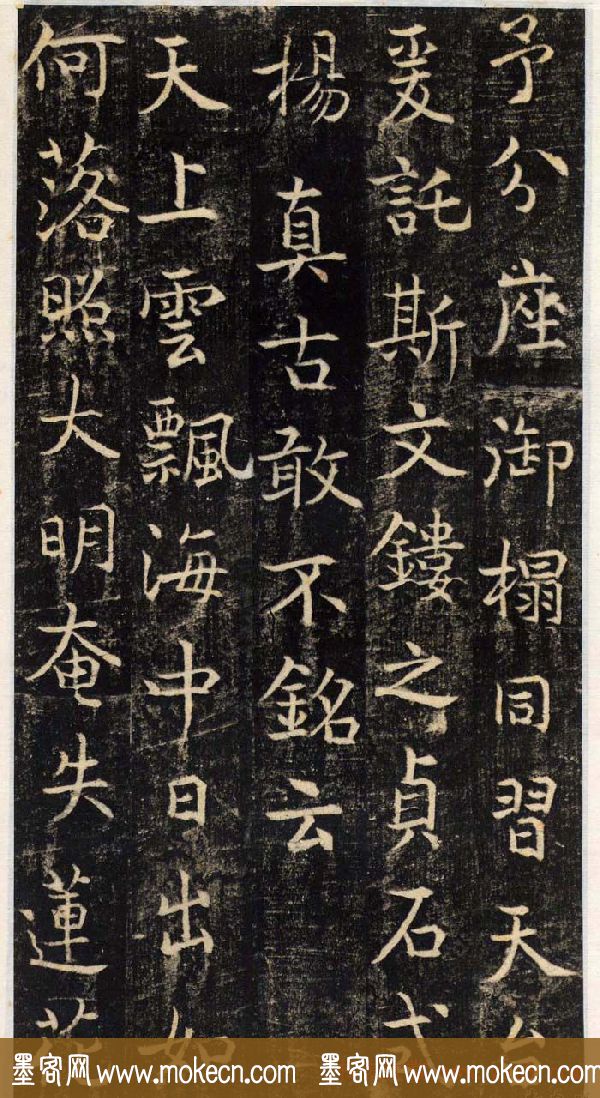 予分座御榻同習天台
爰託斯文鏤之貞石式
揚真古敢不銘云
天上雲飄海中日出如
何落照大明奄失蓮花
墨客网 www.mokecn.com 墨客网 www.mokecn.com